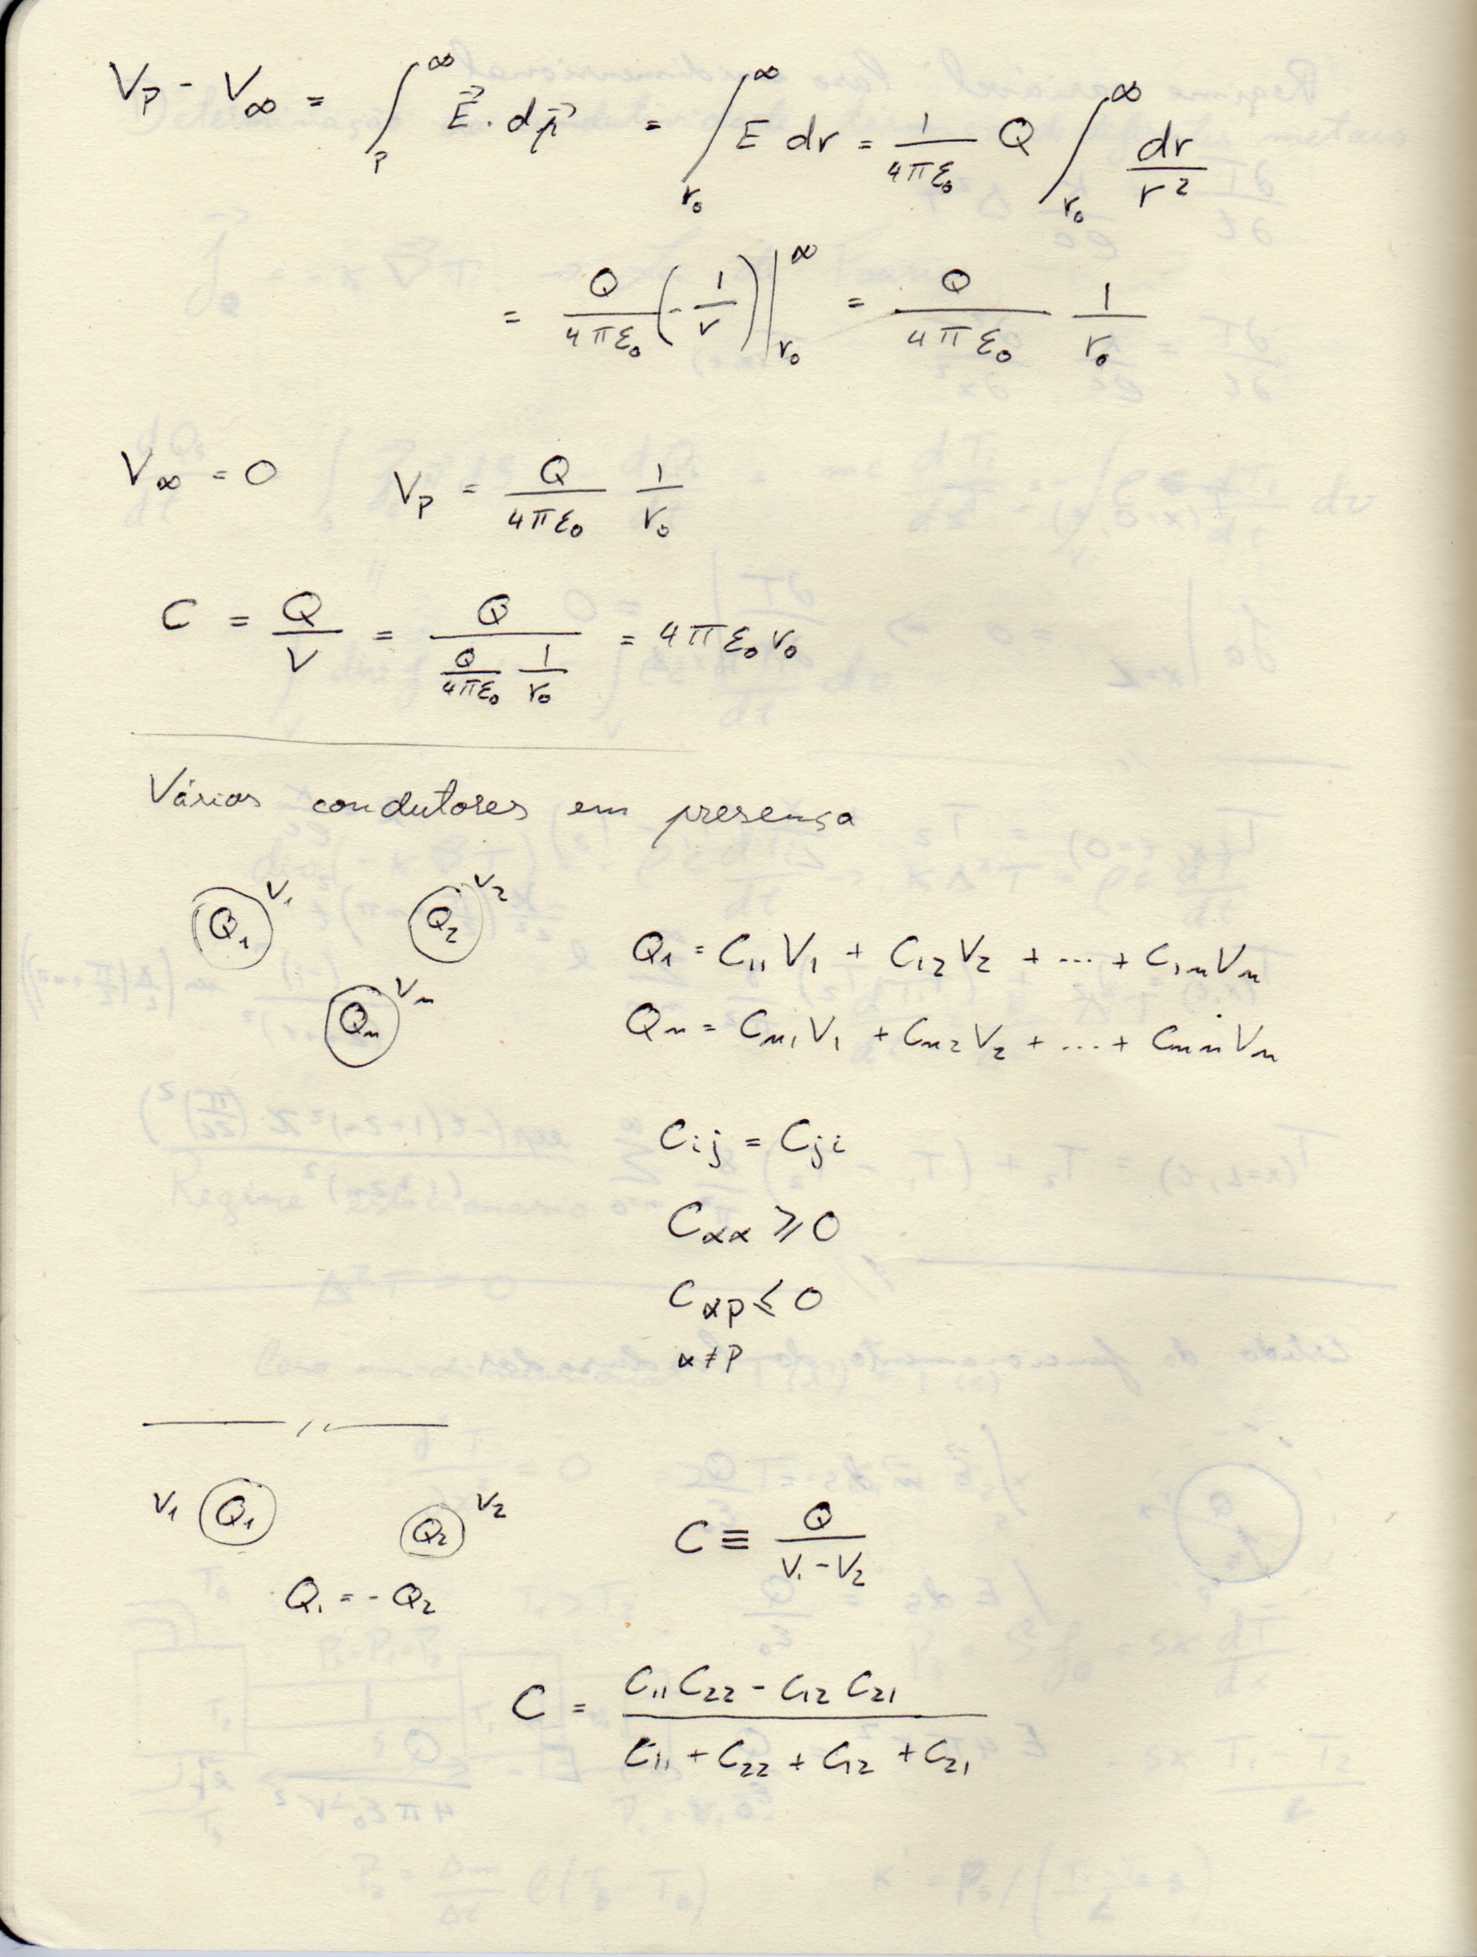 V_P - V_∞ = ∫_P^∞ E⃗ . dp⃗ = ∫_{r_0}^∞ E dr = 1/(4πε_0) Q ∫_{r_0}^∞ dr/r^2
= Q/(4πε_0) (-1/r)|_{r_0}^∞ = Q/(4πε_0) 1/r_0
V_∞ = 0 V_P = Q/(4πε_0) 1/r_0
C = Q/V = Q/(Q/(4πε_0) 1/r_0) = 4πε_0 r_0
Vários condutores em presença
Q_1 V_1 Q_2 V_2
Q_n V_n
Q_1 = C_11 V_1 + C_12 V_2 + ... + C_1n V_n
Q_n = C_n1 V_1 + C_n2 V_2 + ... + C_nn V_n
C_ij = C_ji
C_αα ≥ 0
C_αp ≤ 0
α ≠ p
V_1 Q_1 Q_2 V_2 C ≡ Q/(V_1 - V_2)
Q_1 = - Q_2
C = (C_11 C_22 - C_12 C_21)/(C_11 + C_22 + C_12 + C_21)